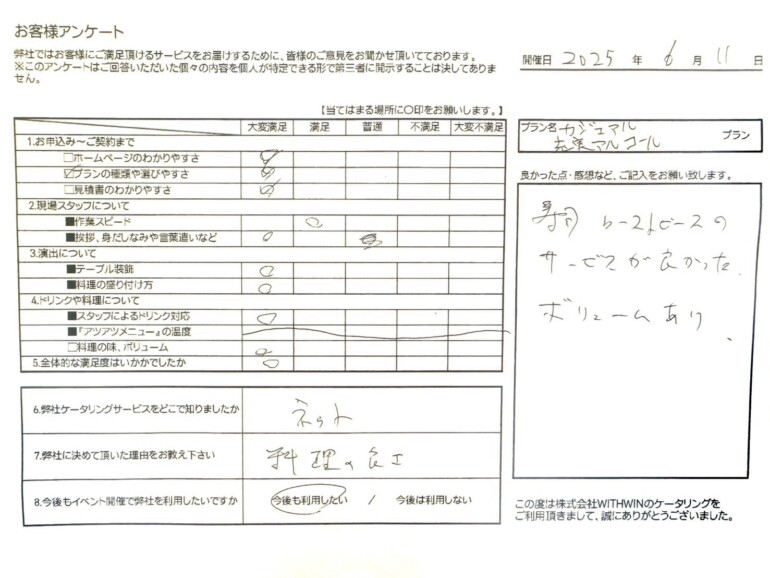 お客様アンケート
弊社ではお客様にご満足頂けるサービスをお届けするために、皆様のご意見をお聞かせ頂いてております。
※このアンケートはご回答いただいた個々の内容を個人が特定できる形で第三者に開示することは決してありま
せん。
開催日 2025 年 6 月 11 日
【当てはまる場所に○印をお願いします。】
大変満足 満足 普通 不満足 大変不満足
1.お申込み～ご契約まで
□ホームページのわかりやすさ
☑プランの種類や選びやすさ
□見積書のわかりやすさ
2.現場スタッフについて
■作業スピード
■挨拶、身だしなみや言葉遣いなど
3.演出について
■テーブル装飾
■料理の盛り付け方
4.ドリンクや料理について
■スタッフによるドリンク対応
■『アツアツメニュー』の温度
□料理の味、ボリューム
5.全体的な満足度はいかかでしたか
6.弊社ケータリングサービスをどこで知りましたか
ネット
7.弊社に決めて頂いた理由をお教え下さい
料理の良さ
8.今後もイベント開催で弊社を利用したいですか
今後も利用したい / 今後は利用しない
プラン名 カジュアル プラン
充実アルコール
良かった点・感想など、ご記入をお願い致します。
寿司 ローストビーフの
サービスが良かった
ボリュームあり
この度は株式会社WITHWINのケータリングを
ご利用頂きまして、誠にありがとうございました。